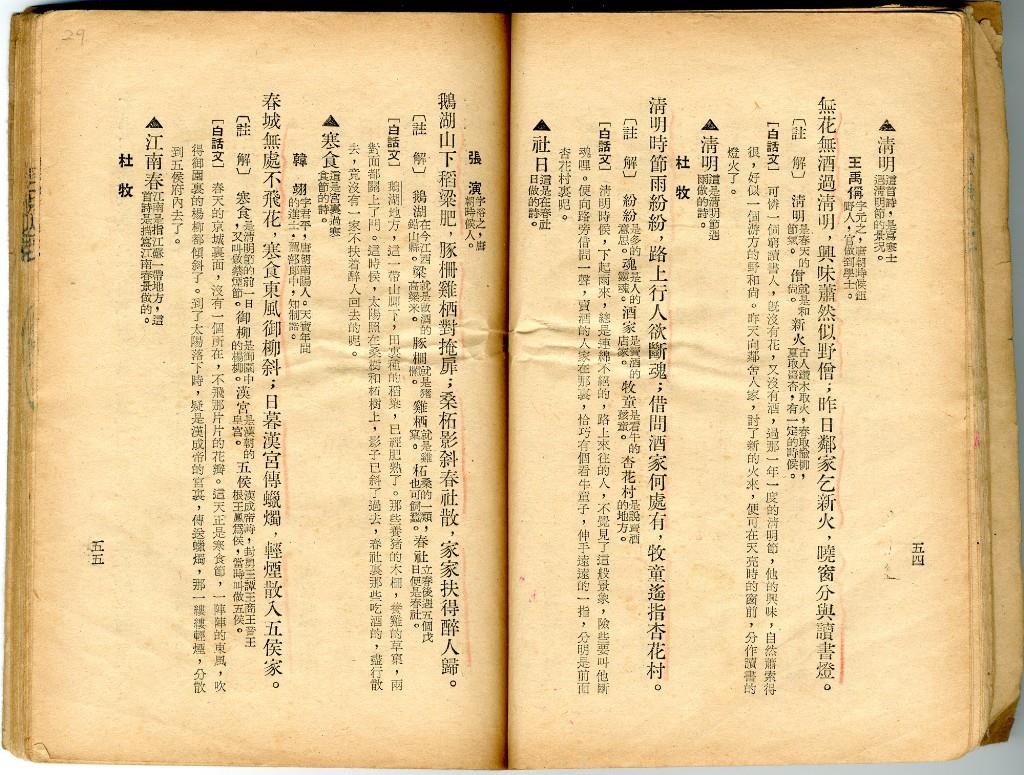 ▲清明 這首詩，是寫寒士過清明節的景況。
王禹偁 字元之，唐朝時候鉅野人，官做到學士。
無花無酒過清明，興味蕭然似野僧；昨日鄰家乞新火，曉窗分與讀書燈。
〔註　解〕　清明 是春天的節氣。 僧 就是和尚。 新火 古人鑽木取火，春取榆柳，夏取棗杏，有一定的時候。
〔白話文〕　可憐一個窮讀書人，旣沒有花，又沒有酒，過那一年一度的清明節，他的興味，自然蕭索得
很，好似一個游方的野和尚。昨天向鄰舍人家，討了新的火來，便可在天亮時的窗前，分作讀書的
燈火了。
▲清明 這是清明節遇雨做的詩。
杜　牧
清明時節雨紛紛，路上行人欲斷魂；借問酒家何處有，牧童遙指杏花村。
〔註　解〕　紛紛 是多的意思。 魂 是人的靈魂。 酒家 是賣酒的店家。 牧童 是看牛的孩童。 杏花村 是說賣酒的地方。
〔白話文〕　清明時候，下起雨來，總是連綿不絕的，路上來往的人，不覺見了這般景象，險些要叫他斷
魂哩。便向路旁借問一聲，賣酒的人家在那裏，恰巧有個看牛童子，伸手遠遠的一指，分明是前面
杏花村裏呢。
▲社日 這是在春社日做的詩。
五四
張　演 字裕之，唐朝時候人。
鵝湖山下稻粱肥，豚柵雞栖對掩扉；桑柘影斜春社散，家家扶得醉人歸。
〔註　解〕　鵝湖 在今江西鉛山縣。 粱 就是做酒的高粱米。 豚柵 就是豬欄。 雞栖 就是雞窠。 柘 桑的一類，也可飼蠶。 春社 立春後遇五個戊日便是春社。
〔白話文〕　鵝湖地方，這一帶山脚下，田裏種的稻粱，已經肥熟了。那些養豬的木柵，養雞的草窠，兩
對面都關上了門。這時候，太陽照在桑樹和柘樹上，影子已斜了過去，春社裏那些吃酒的，盡行散
去，竟沒有一家不扶着醉人回去的呢。
▲寒食 這是宮裏過寒食節的詩。
韓　翃 字君平，唐朝南陽人。天寶年間的進士，駕部郎中，知制誥。
春城無處不飛花，寒食東風御柳斜；日暮漢宮傳蠟燭，輕煙散入五侯家。
〔註　解〕　寒食 是清明節的前一日，又叫做禁煙節。 御柳 是御園中的楊柳。 漢宮 是漢朝的皇宮。 五侯 漢成帝時，封舅王譚王商王音王根王鳳爲侯，當時叫做五侯。
〔白話文〕　春天的京城裏面，沒有一個所在，不飛那片片的花瓣。這天正是寒食節，一陣陣的東風，吹
得御園裏的楊柳都傾斜了。到了太陽落下時，疑是漢成帝的宮裏，傳送蠟燭，那一縷縷輕煙，分散
到五侯府內去了。
▲江南春 江南是指江蘇一帶地方，這首詩是描寫江南春景做的。
杜　牧
五五
29